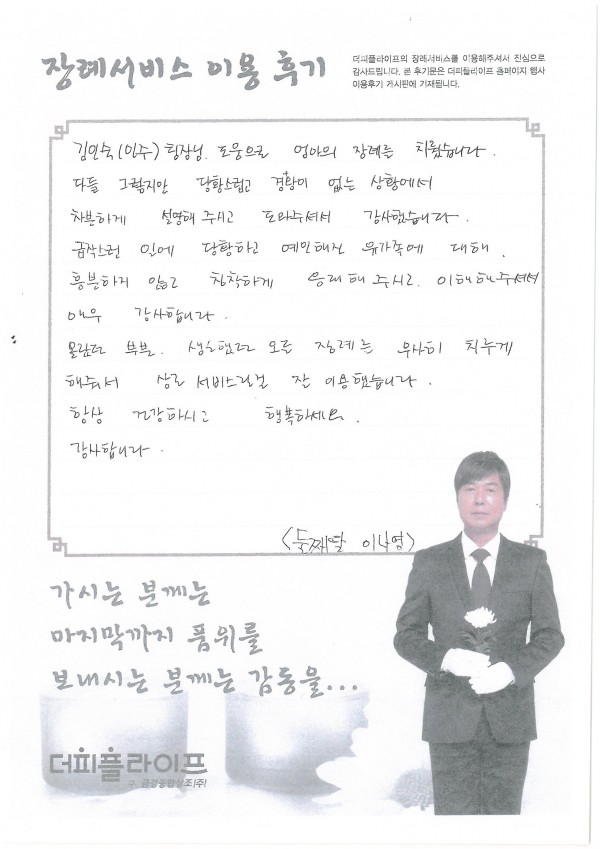 장례서비스 이용 후기
더피플라이프의 장례서비스를 이용해주셔서 진심으로
감사드립니다. 본 후기문은 더피플라이프 홈페이지 행사
이용후기 게시판에 기재됩니다.
김인숙(인주) 팀장님. 도움으로 엄마의 장례를 치뤘습니다.
다들 그렇지만 당황스럽고 경황이 없는 상황에서
차분하게 설명해 주시고 도와주셔서 감사했습니다.
급작스런 일에 당황하고 예민해진 유가족에 대해
흥분하지 않고 침착하게 응대해 주시고. 이해해주셔서
매우 감사합니다.
몰랐던 부분. 생소했던 모든 장례를 무사히 치루게
해줘서 상조 서비스라는걸 잘 이용했습니다.
항상 건강하시고 행복하세요.
감사합니다.
<둘째딸 이나영>
가시는 분께는
마지막까지 품위를
보내시는 분께는 감동을...
더피플라이프
구. 금강종합상조(주)